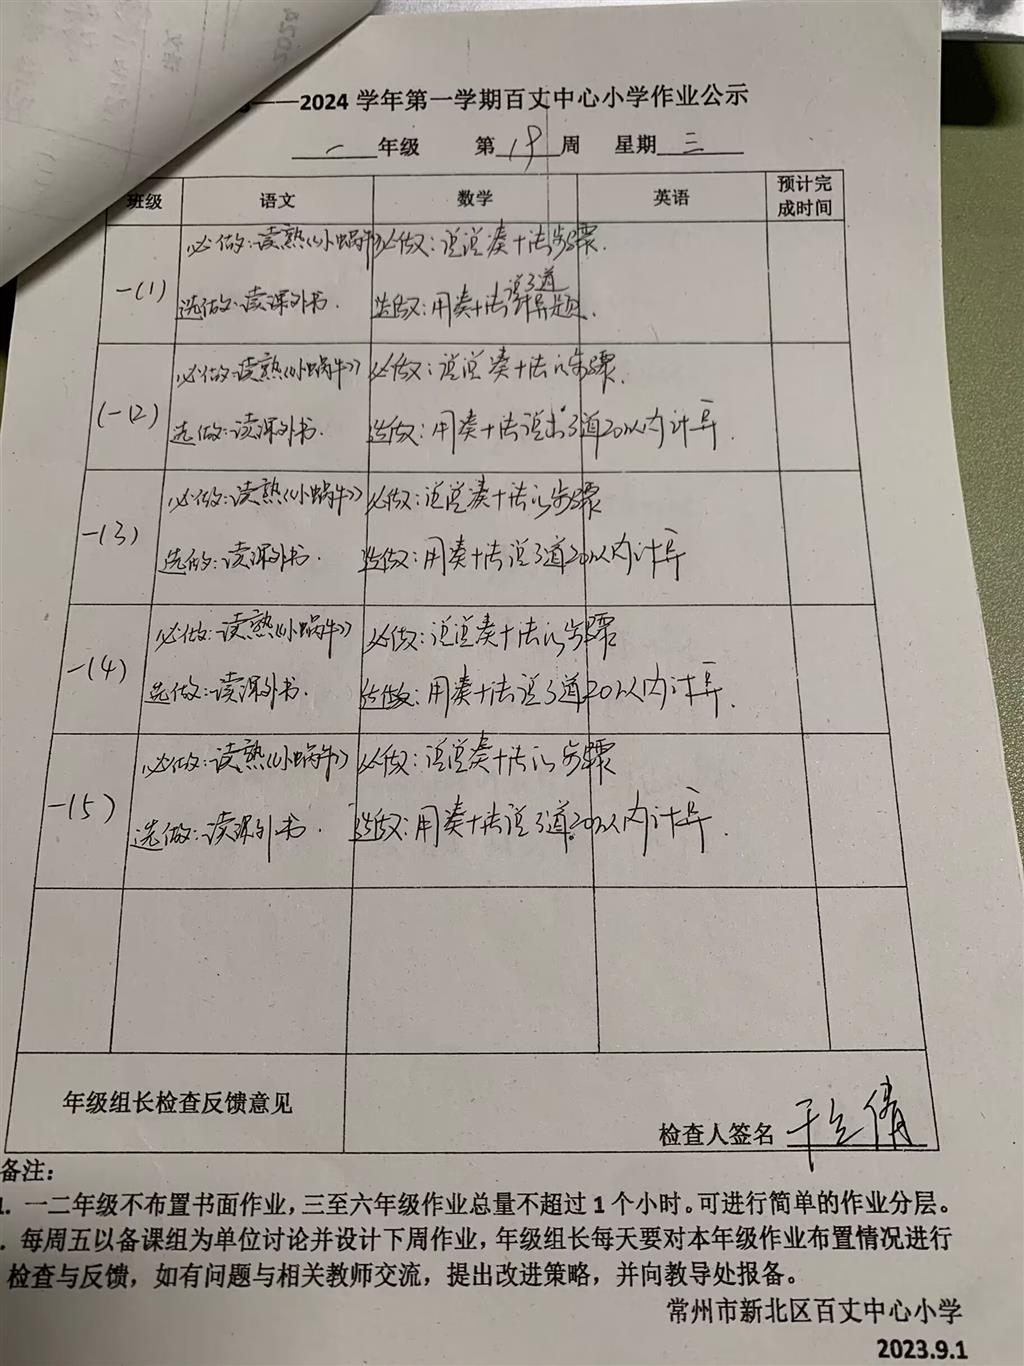 ——2024 学年第一学期百丈中心小学作业公示
一 年级 第 19 周 星期 三
班级 语文 数学 英语 预计完成时间
一(1) 必做:读熟《小蜗牛》 必做:说说凑十法步骤.
选做:读课外书. 选做:用凑十法说3道计算题.
(一(2) 必做:读熟《小蜗牛》 必做:说说凑十法的步骤.
选做:读课外书. 选做:用凑十法说出3道20以内计算.
一(3) 必做:读熟《小蜗牛》 必做:说说凑十法的步骤
选做:读课外书. 选做:用凑十法说3道20以内计算
一(4) 必做:读熟《小蜗牛》 必做:说说凑十法的步骤
选做:读课外书. 选做:用凑十法说3道20以内计算.
一(5) 必做:读熟《小蜗牛》 必做:说说凑十法的步骤
选做:读课外书. 选做:用凑十法说3道20以内计算.
年级组长检查反馈意见
检查人签名
备注:
1. 一二年级不布置书面作业,三至六年级作业总量不超过 1 个小时。可进行简单的作业分层。
. 每周五以备课组为单位讨论并设计下周作业,年级组长每天要对本年级作业布置情况进行
检查与反馈,如有问题与相关教师交流,提出改进策略,并向教导处报备。
常州市新北区百丈中心小学
2023.9.1